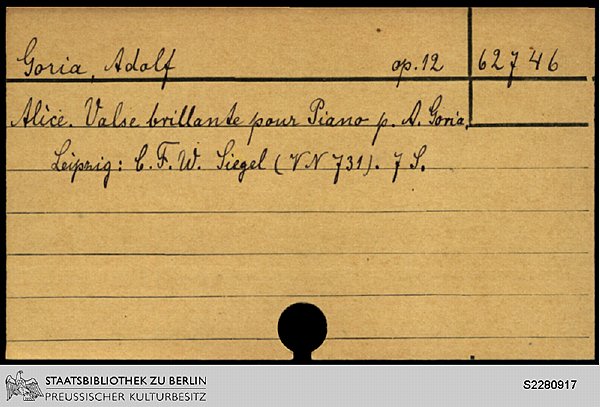 Goria, Adolf op. 12 62746
Alice. Valse brillante pour Piano p. A. Goria.
Leipzig: C. F. W. Siegel (VN 731). 7 S.
STAATSBIBLIOTHEK ZU BERLIN
PREUSSISCHER KULTURBESITZ
S2280917